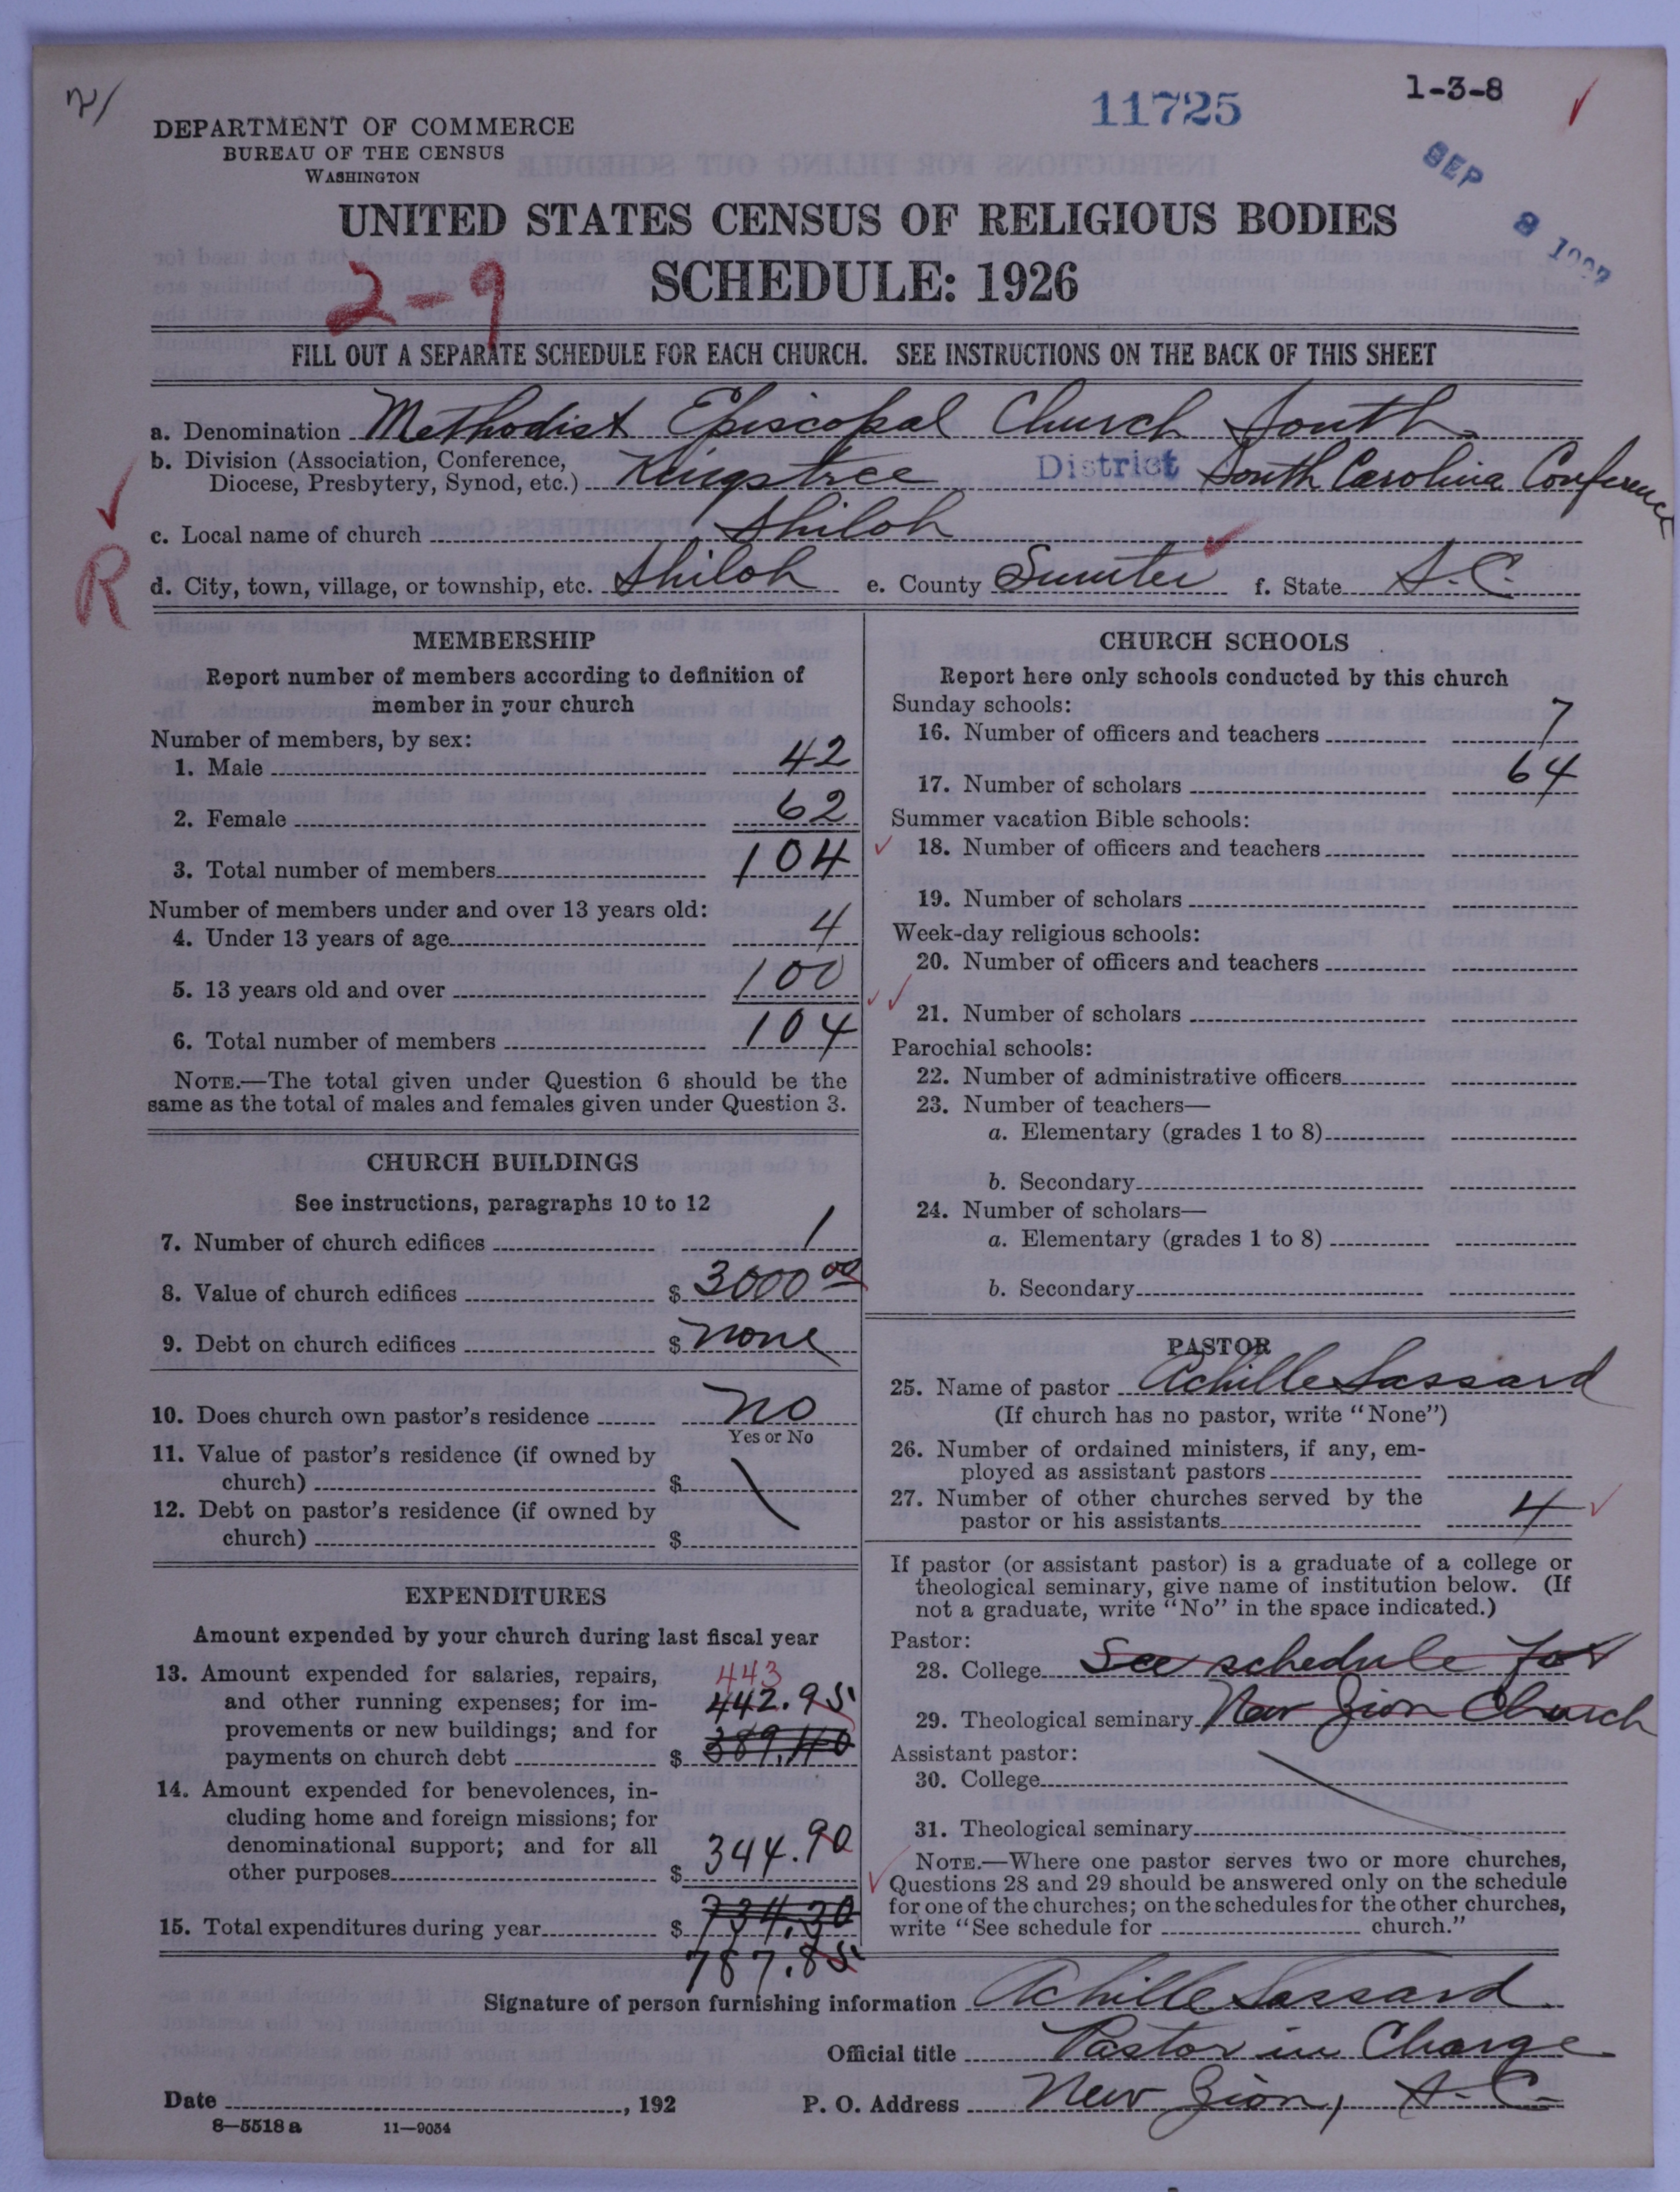 11725
1-3-8
SEP 8 1927
DEPARTMENT OF COMMERCE
BUREAU OF THE CENSUS
WASHINGTON
UNITED STATES CENSUS OF RELIGIOUS BODIES
SCHEDULE: 1926
2-9
FILL OUT A SEPARATE SCHEDULE FOR EACH CHURCH. SEE INSTRUCTIONS ON THE BACK OF THIS SHEET
a. Denomination Methodist Episcopal Church South
b. Division (Association, Conference,
Diocese, Presbytery, Synod, etc.) Kingstree District South Carolina Conference
c. Local name of church Shiloh
R
d. City, town, village, or township, etc. Shiloh e. County Sumter f. State S.C.
MEMBERSHIP
Report number of members according to definition of
member in your church
Number of members, by sex:
1. Male 42
2. Female 62
3. Total number of members 104
Number of members under and over 13 years old:
4. Under 13 years of age 4
5. 13 years old and over 100
6. Total number of members 104
NOTE.—The total given under Question 6 should be the
same as the total of males and females given under Question 3.
CHURCH BUILDINGS
See instructions, paragraphs 10 to 12
7. Number of church edifices 1
8. Value of church edifices $ 3000 00
9. Debt on church edifices $ none
10. Does church own pastor's residence no
Yes or No
11. Value of pastor's residence (if owned by
church) $
12. Debt on pastor's residence (if owned by
church) $
EXPENDITURES
Amount expended by your church during last fiscal year
13. Amount expended for salaries, repairs, 443
and other running expenses; for im- 442.95
provements or new buildings; and for
payments on church debt $ 389.40
14. Amount expended for benevolences, in-
cluding home and foreign missions; for
denominational support; and for all
other purposes $ 344.90
15. Total expenditures during year $ 734.30
787.85
CHURCH SCHOOLS
Report here only schools conducted by this church
Sunday schools:
16. Number of officers and teachers 7
17. Number of scholars 64
Summer vacation Bible schools:
18. Number of officers and teachers
19. Number of scholars
Week-day religious schools:
20. Number of officers and teachers
21. Number of scholars
Parochial schools:
22. Number of administrative officers
23. Number of teachers—
a. Elementary (grades 1 to 8)
b. Secondary
24. Number of scholars—
a. Elementary (grades 1 to 8)
b. Secondary
PASTOR
25. Name of pastor Achille Sassard
(If church has no pastor, write "None")
26. Number of ordained ministers, if any, em-
ployed as assistant pastors
27. Number of other churches served by the
pastor or his assistants 4
If pastor (or assistant pastor) is a graduate of a college or
theological seminary, give name of institution below. (If
not a graduate, write "No" in the space indicated.)
Pastor:
28. College See schedule for
29. Theological seminary New Zion Church
Assistant pastor:
30. College
31. Theological seminary
NOTE.—Where one pastor serves two or more churches,
Questions 28 and 29 should be answered only on the schedule
for one of the churches; on the schedules for the other churches,
write "See schedule for church."
Signature of person furnishing information Achille Sassard
Official title Pastor in Charge
Date , 192 P. O. Address New Zion, S.C.
8—5518 a 11—9054